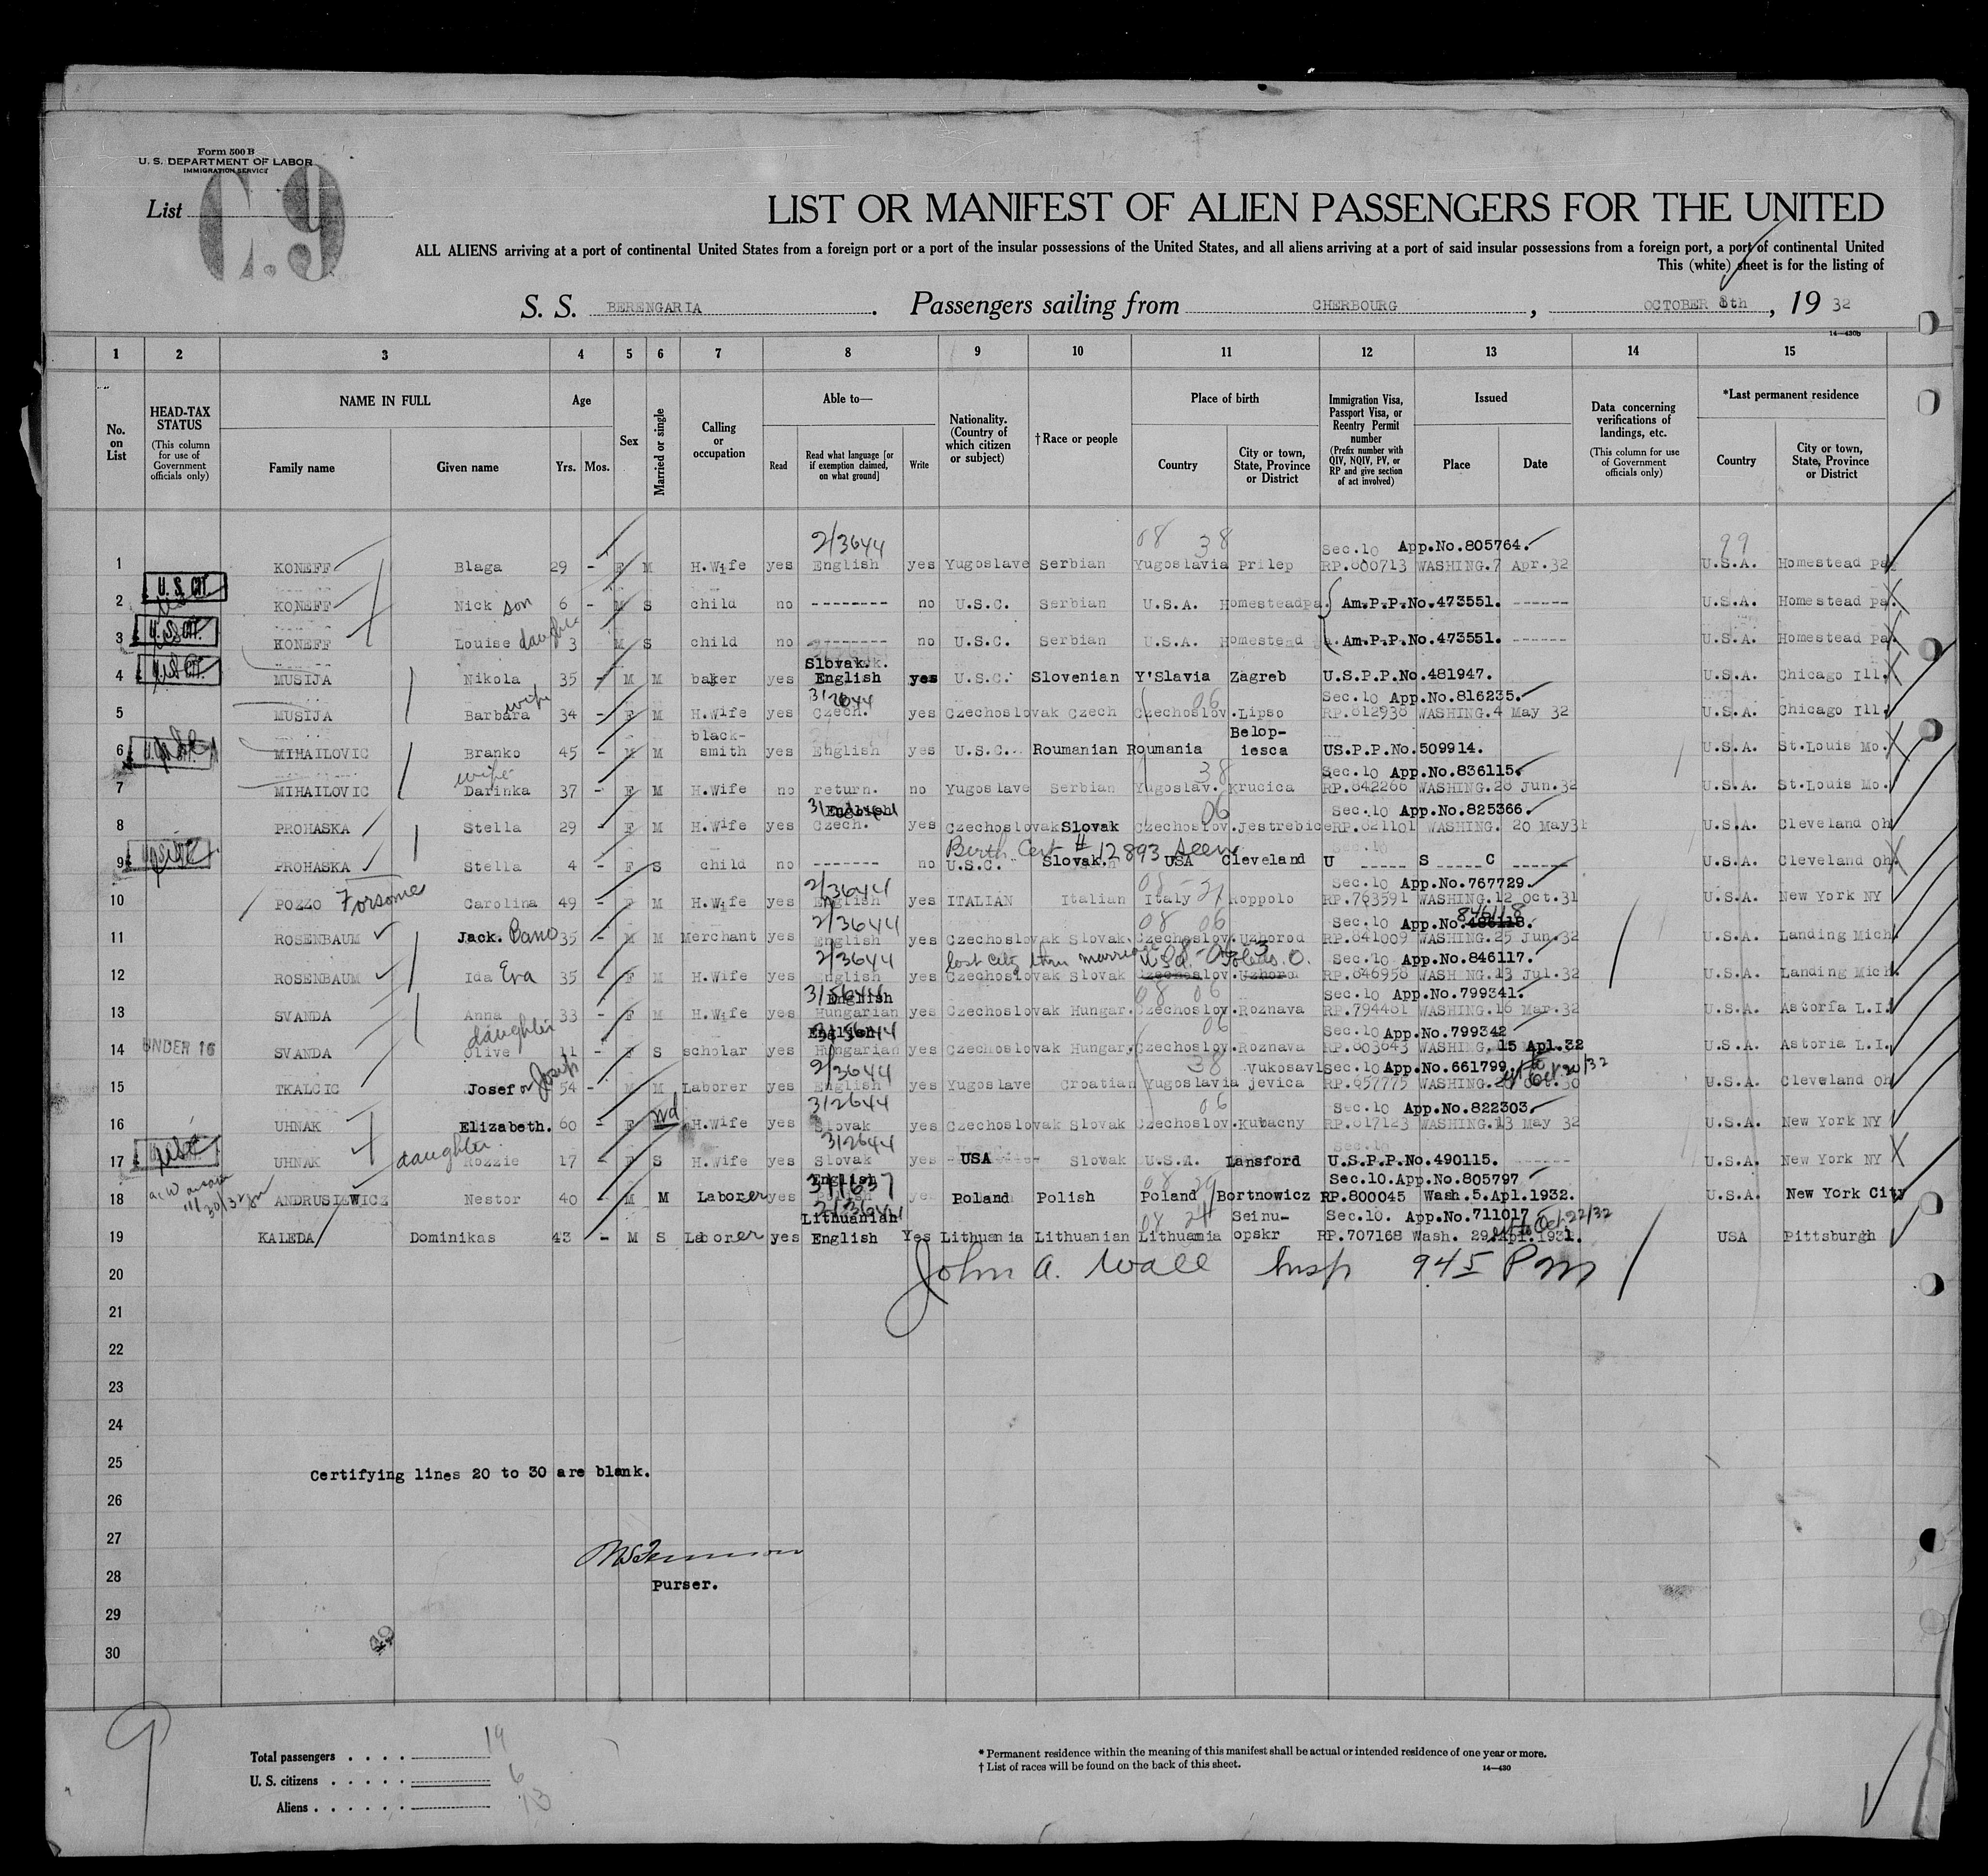 Form 500 B
U. S. DEPARTMENT OF LABOR
IMMIGRATION SERVICE
List C.9
LIST OR MANIFEST OF ALIEN PASSENGERS FOR THE UNITED
ALL ALIENS arriving at a port of continental United States from a foreign port or a port of the insular possessions of the United States, and all aliens arriving at a port of said insular possessions from a foreign port, a port of continental United
This (white) sheet is for the listing of
S. S. BERENGARIA. Passengers sailing from CHERBOURG, OCTOBER 8th, 19 32
14—430b
1 2 3 4 5 6 7 8 9 10 11 12 13 14 15
No. on List
HEAD-TAX STATUS (This column for use of Government officials only)
NAME IN FULL
Family name Given name
Age Yrs. Mos.
Sex
Married or single
Calling or occupation
Able to—
Read Read what language [or if exemption claimed, on what ground] Write
Nationality. (Country of which citizen or subject)
† Race or people
Place of birth
Country City or town, State, Province or District
Immigration Visa, Passport Visa, or Reentry Permit number (Prefix number with QIV, NQIV, PV, or RP and give section of act involved)
Issued
Place Date
Data concerning verifications of landings, etc. (This column for use of Government officials only)
*Last permanent residence
Country City or town, State, Province or District
2/3644 08 38 Sec.10 App.No.805764. 99
1 KONEFF Blaga 29 - F M H.Wife yes English yes Yugoslave Serbian Yugoslavia Prilep RP.800713 WASHING.7 Apr.32 U.S.A. Homestead pa
2 U.S. CIT KONEFF Nick son 6 - M S child no -------- no U.S.C. Serbian U.S.A. Homestead pa. Am.P.P.No.473551. ------ U.S.A. Homestead pa.
3 U.S. CIT. KONEFF Louise daughter 3 M S child no -------- no U.S.C. Serbian U.S.A. Homestead Am.P.P.No.473551. ------ U.S.A. Homestead pa.
Slovak.
4 U.S. CIT. MUSIJA Nikola 35 - M M baker yes English yes U.S.C. Slovenian Y'Slavia Zagreb U.S.P.P.No.481947. U.S.A. Chicago Ill.
wife 312644 06 Sec.10 App.No.816235.
5 MUSIJA Barbara 34 - F M H.Wife yes Czech. yes Czechoslovak Czech Czechoslov. Lipso RP.812938 WASHING.4 May 32 U.S.A. Chicago Ill.
black- Belop-
6 MIHAILOVIC Branko 45 - M M smith yes English yes U.S.C. Roumanian Roumania iesca US.P.P.No.509914. U.S.A. St.Louis Mo.
wife 38 Sec.10 App.No.836115.
7 MIHAILOVIC Darinka 37 - F M H.Wife no return. no Yugoslave Serbian Yugoslav. Krucica RP.842266 WASHING.28 Jun.32 U.S.A. St.Louis Mo.
English 06 Sec.10 App.No.825366.
8 PROHASKA Stella 29 - F M H.Wife yes Czech. yes Czechoslovak Slovak Czechoslov. Jestrebice RP.821101 WASHING. 20 May31 U.S.A. Cleveland Oh
Birth Cert # 12893 seen
9 PROHASKA Stella 4 - F S child no ------- no U.S.C. Slovak. USA Cleveland U ----- S ----- C ------ U.S.A. Cleveland Oh.
2/3644 08 - 21 Sec.10 App.No.767729.
10 POZZO Forsome Carolina 49 - F M H.Wife yes English yes ITALIAN Italian Italy Roppolo RP.763591 WASHING.12 Oct.31 U.S.A. New York NY
2/3644 08 06 Sec.10 App.No. 486118. 846118
11 ROSENBAUM Jack. 35 - M M Merchant yes English yes Czechoslovak Slovak. Czechoslov. Uzhorod RP.841009 WASHING.25 Jun.32 U.S.A. Landing Mich.
2/3644 lost city thru marriage U.S.A. Toledo. O. Sec.10 App.No.846117.
12 ROSENBAUM Ida Eva 35 - F M H.Wife yes English yes Czechoslovak Slovak Czechoslov. Uzhorod RP.846958 WASHING.13 Jul.32 U.S.A. Landing Mich.
English 08 06 Sec.10 App.No.799341.
13 SVANDA Anna 33 - F M H.Wife yes Hungarian yes Czechoslovak Hungar. Czechoslov. Roznava RP.794461 WASHING.16 Mar.32 U.S.A. Astoria L.I.
daughter English 06 Sec.10 App.No.799342
14 UNDER 16 SVANDA Olive 11 - F S scholar yes Hungarian yes Czechoslovak Hungar. Czechoslov. Roznava RP.803643 WASHING. 15 Apl.32 U.S.A. Astoria L.I.
2/3644 38 Vukosavl Sec.10 App.No.661799. Oct 20/32
15 TKALCIC Josef or Joseph 54 - M M Laborer yes English yes Yugoslave Croatian Yugoslavia jevica RP.657775 WASHING. Oct.30 U.S.A. Cleveland Oh
312644 06 Sec.10 App.No.822303.
16 UHNAK Elizabeth. 60 - F Wd H.Wife yes Slovak yes Czechoslovak Slovak Czechoslov. Kubacny RP.817123 WASHING.13 May 32 U.S.A. New York NY
312644
17 UHNAK daughter Rozzie 17 - F S H.Wife yes Slovak yes USA Slovak U.S.A. Lansford U.S.P.P.No.490115. ------ U.S.A. New York NY
English Sec.10.App.No.805797
18 ANDRUSIEWICZ Nestor 40 - M M Laborer yes Polish yes Poland Polish Poland Bortnowicz RP.800045 Wash.5.Apl.1932. U.S.A. New York City
Lithuanian 08 24 Seinu- Sec.10. App.No.711017 Oct 22/32
19 KALEDA Dominikas 43 - M S Laborer yes English Yes Lithuania Lithuanian Lithuania opskr RP.707168 Wash. 29.Apl.1931. USA Pittsburgh
20 John A. Wall Insp 945 Pm
21
22
23
24
25
Certifying lines 20 to 30 are blank.
26
27
28
Purser.
29
30
Total passengers . . . . 19
U. S. citizens . . . . . 6
Aliens . . . . . . 13
* Permanent residence within the meaning of this manifest shall be actual or intended residence of one year or more.
† List of races will be found on the back of this sheet.
14—430